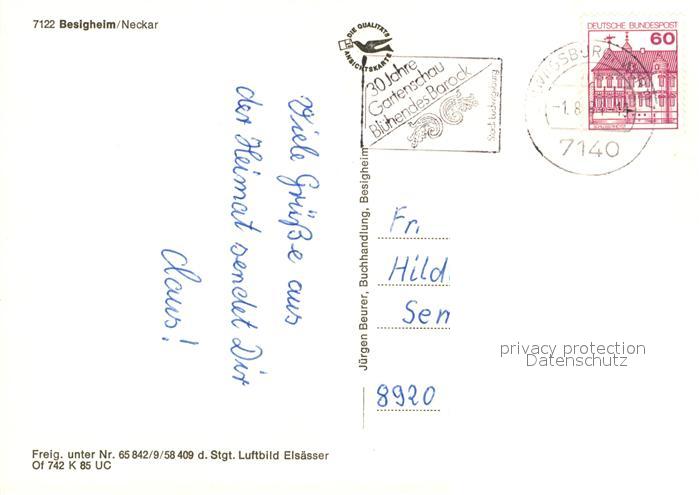 7122 Besigheim/Neckar
DIE QUALITÄTS
ANSICHTSKARTE
30 Jahre
Gartenschau
Blühendes Barock
Stadt Ludwigsburg
DEUTSCHE BUNDESPOST
60
7140
Viele Grüße aus
der Heimat sendet Dir
Claus!
Jürgen Beurer, Buchhandlung, Besigheim
Fr.
Hild
Sen
8920
privacy protection
Datenschutz
Freig. unter Nr. 65 842/9/58 409 d. Stgt. Luftbild Elsässer
Of 742 K 85 UC